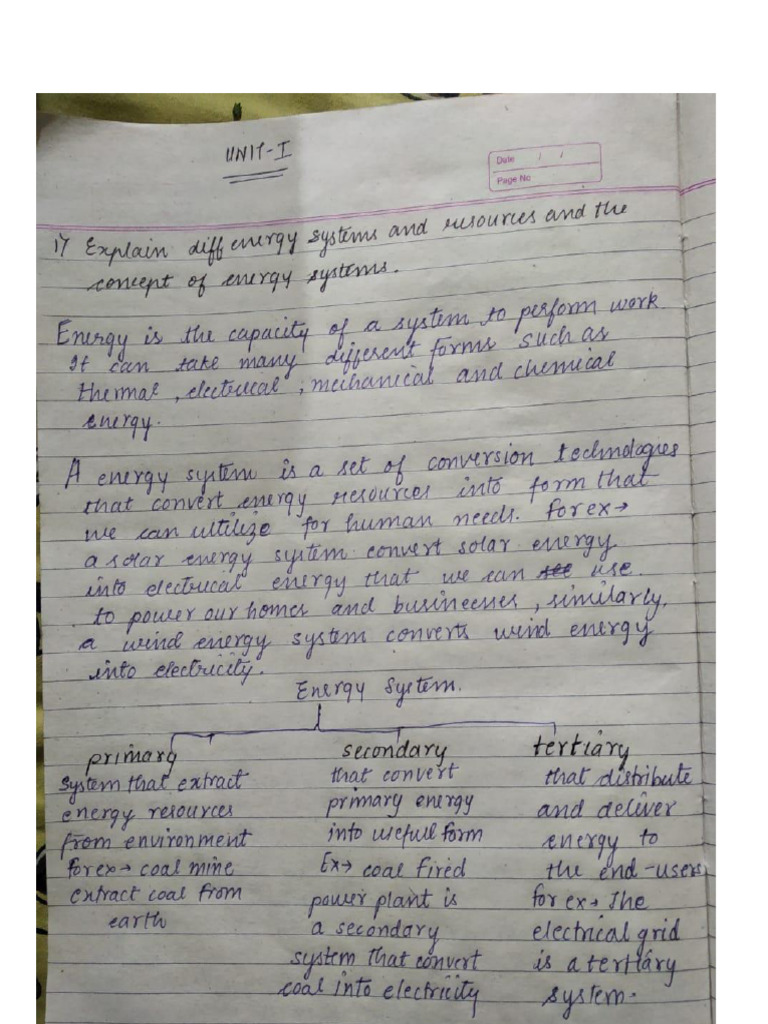 UNIT-I
Date / /
Page No
1) Explain diff energy systems and resources and the
concept of energy systems.
Energy is the capacity of a system to perform work
It can take many different forms such as
thermal, electrical, mechanical and chemical
energy.
A energy system is a set of conversion technologies
that convert energy resources into form that
we can ultilize for human needs. for ex→
a solar energy system convert solar energy
into electrical energy that we can use
to power our homes and businesses, similarly,
a wind energy system converts wind energy
into electricity.
Energy System.
primary secondary tertiary
System that extract that convert that distribute
energy resources primary energy and deliver
from environment into usefull form energy to
for ex→ coal mine Ex→ coal fired the end-users
extract coal from power plant is for ex→ The
earth a secondary electrical grid
system that convert is a tertiary
coal into electricity system.